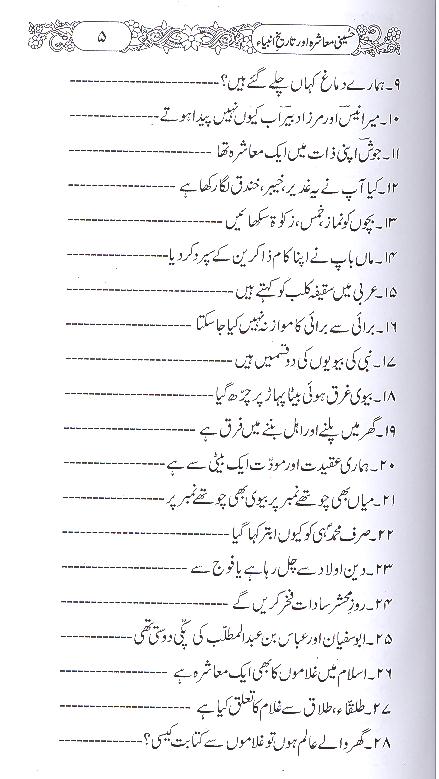 ۵
حسینی معاشرہ اور تاریخ انبیاء
۹۔ ہمارے دماغ کہاں چلے گئے ہیں؟
۱۰۔ میر انیسؔ اور مرزا دبیرؔ اب کیوں نہیں پیدا ہوتے
۱۱۔ جوشؔ اپنی ذات میں ایک معاشرہ تھا
۱۲۔ کیا آپ نے یہ غدیر، خیبر، خندق لگا رکھا ہے
۱۳۔ بچوں کو نماز، خمس، زکوٰۃ سکھائیں
۱۴۔ ماں باپ نے اپنا کام ذاکرین کے سپرد کر دیا
۱۵۔ عربی میں سقیفہ کلب کو کہتے ہیں
۱۶۔ برائی سے برائی کا موازنہ نہیں کیا جا سکتا
۱۷۔ نبی کی بیویوں کی دو قسمیں ہیں
۱۸۔ بیوی غرق ہوئی بیٹا پہاڑ پر چڑھ گیا
۱۹۔ گھر میں پلنے اور اہل بننے میں فرق ہے
۲۰۔ ہماری عقیدت اور مودّت ایک بیٹی سے ہے
۲۱۔ میاں بھی چوتھے نمبر پر بیوی بھی چوتھے نمبر پر
۲۲۔ صرف محمدؐ ہی کو کیوں ابتر کہا گیا
۲۳۔ دین اولاد سے چل رہا ہے یا فوج سے
۲۴۔ روزِ محشر سادات فخر کریں گے
۲۵۔ ابوسفیان اور عباس بن عبدالمطلّب کی پکّی دوستی تھی
۲۶۔ اسلام میں غلاموں کا بھی ایک معاشرہ ہے
۲۷۔ طلقاء، طلاق سے غلام کا تعلق کیا ہے
۲۸۔ گھر والے عالم ہوں تو غلاموں سے کتابت کیسی؟